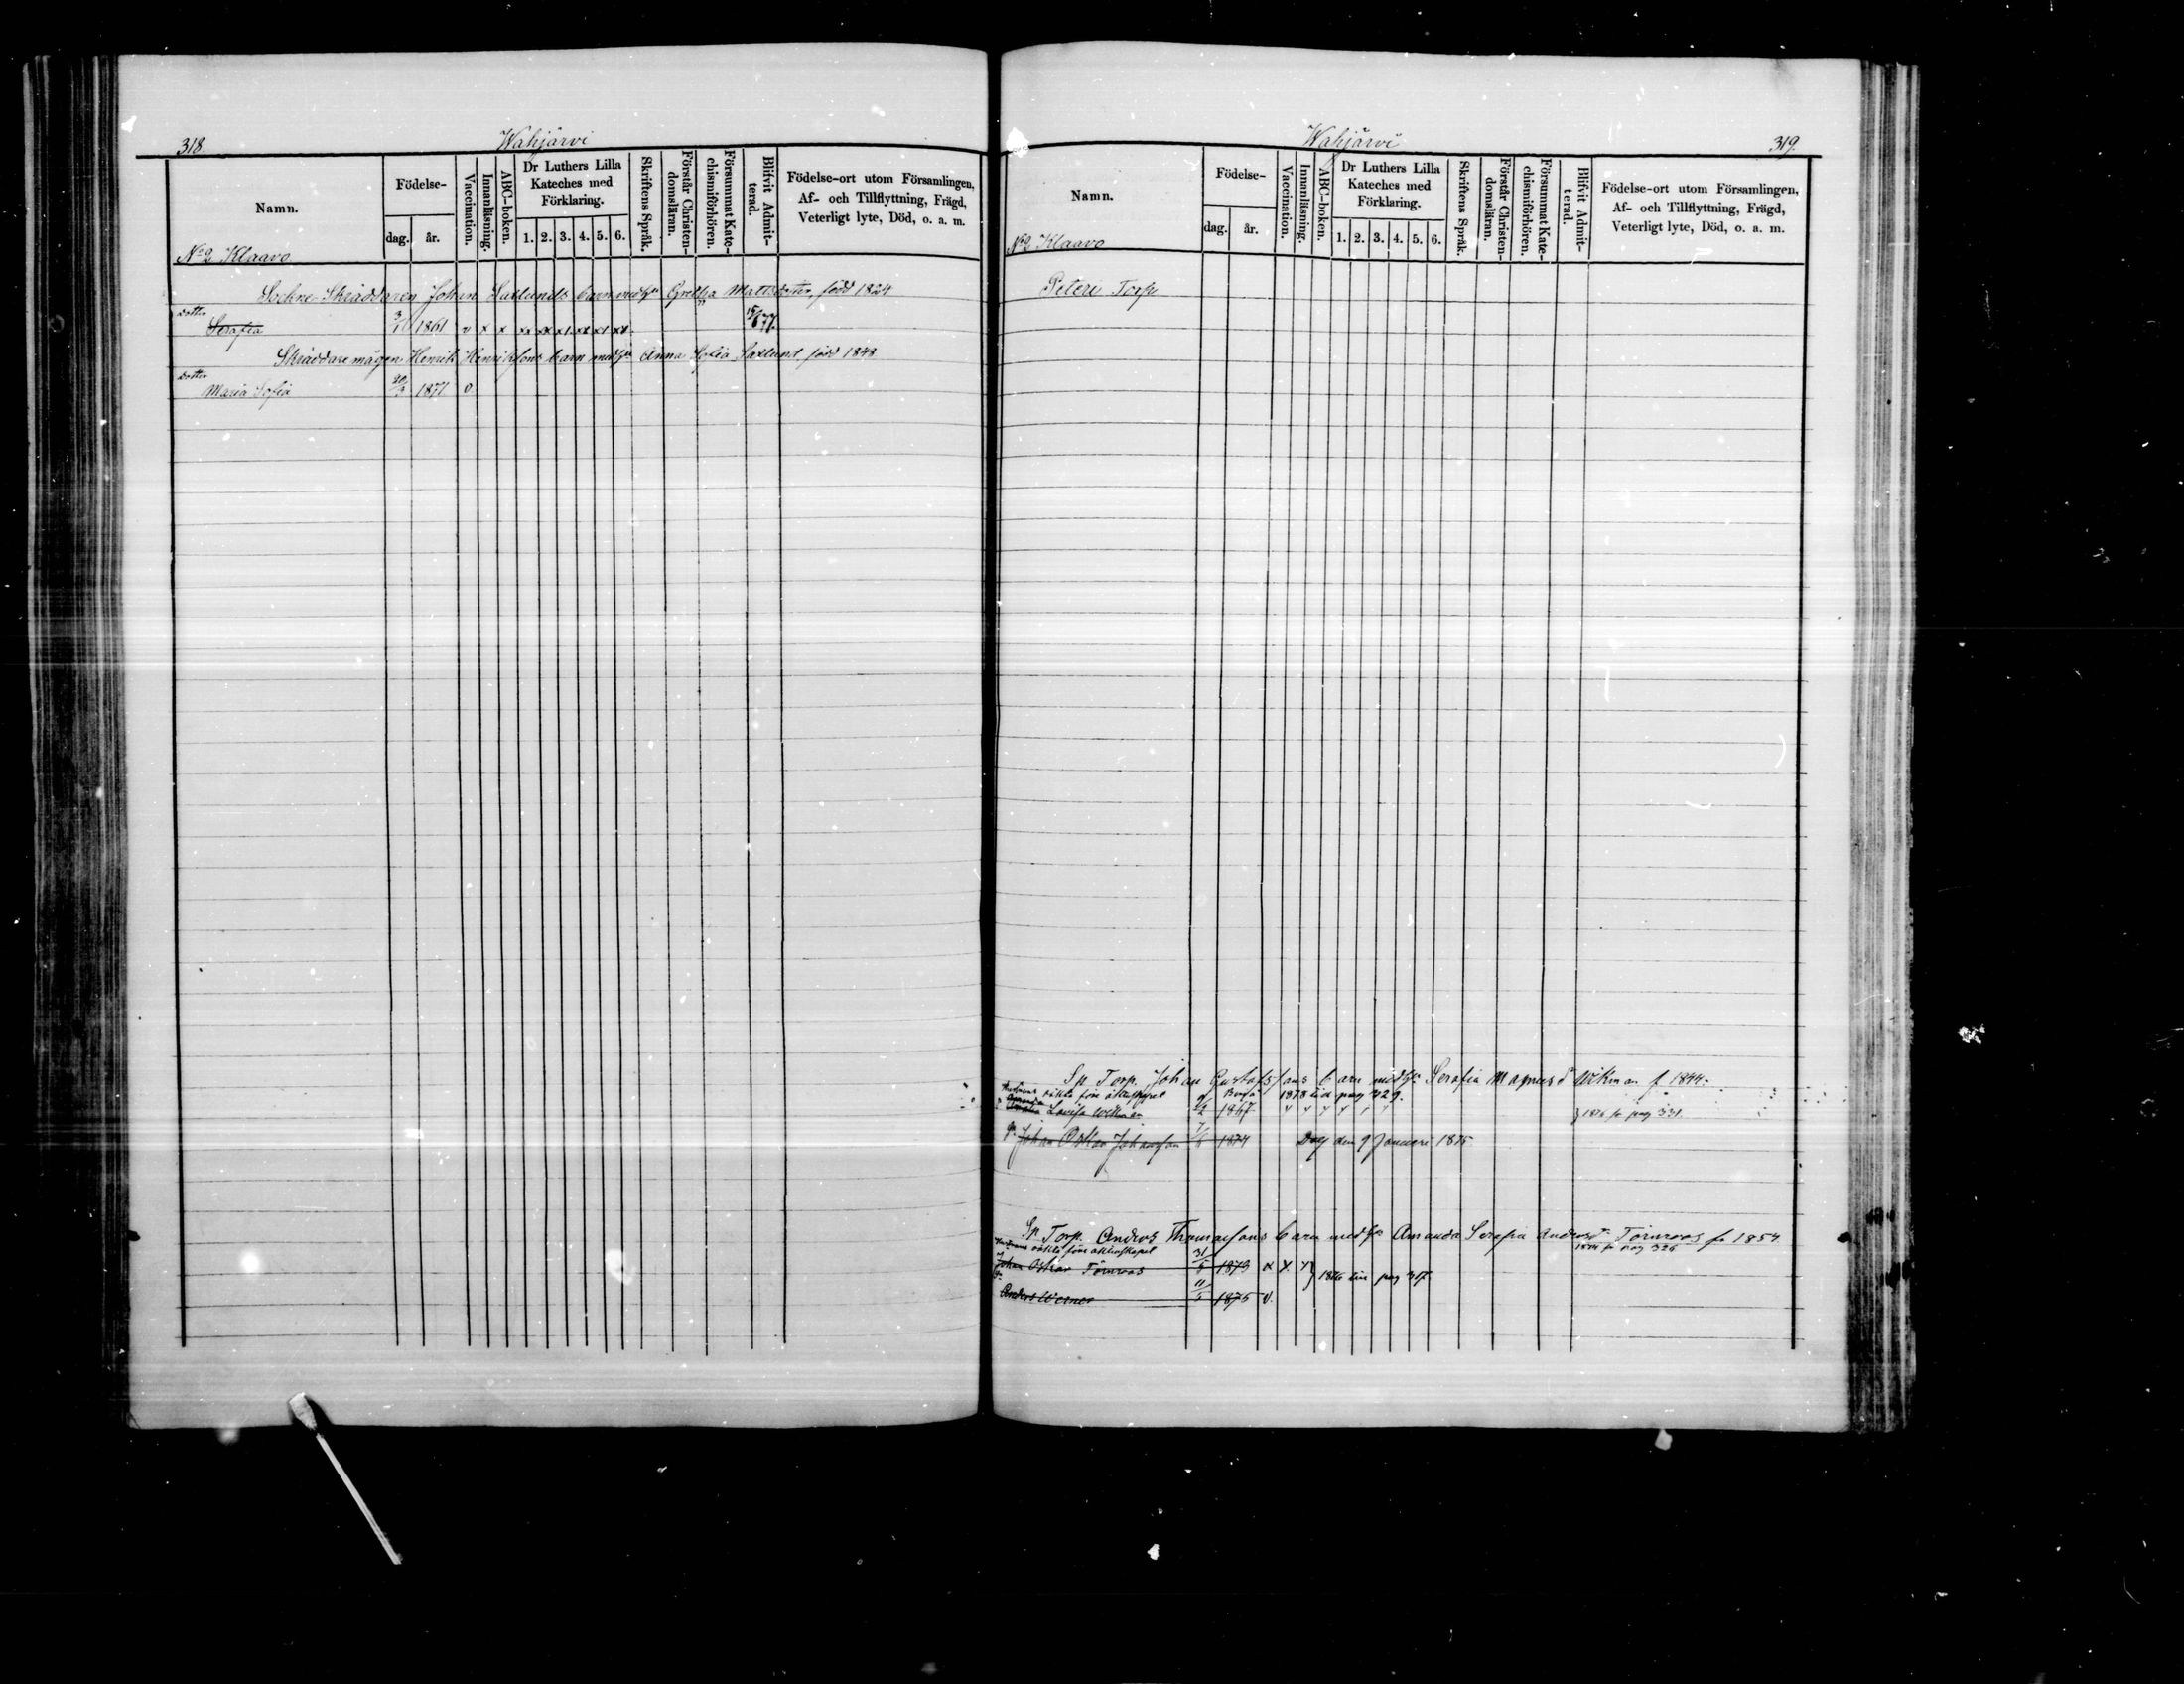 318
Wahjärvi
Namn.
Födelse-
dag.
år.
Vaccination.
Innanläsning.
ABC-boken.
Dr Luthers Lilla
Kateches med
Förklaring.
1. 2. 3. 4. 5. 6.
Skriftens Språk.
Förstår Christen-
domsläran.
Försummat Kate-
chismiförhören.
Blifvit Admit-
terad.
Födelse-ort utom Församlingen,
Af- och Tillflyttning, Frägd,
Veterligt lyte, Död, o. a. m.
No 2 Klaavo
Sockne-Skräddaren Johan Saxlunds barn med h. Gretha Mattsdotter, född 1824
dotter
Serafia 1861 v x x
Skräddare mågen Henrik Henrikssons barn med h. Anna Sofia Saxlund född 1848
dotter
Maria Sofia 20/3 1871 v
Wahjärvi
319.
Namn.
Födelse-
dag.
år.
Vaccination.
Innanläsning.
ABC-boken.
Dr Luthers Lilla
Kateches med
Förklaring.
1. 2. 3. 4. 5. 6.
Skriftens Språk.
Förstår Christen-
domsläran.
Försummat Kate-
chismiförhören.
Blifvit Admit-
terad.
Födelse-ort utom Församlingen,
Af- och Tillflyttning, Frägd,
Veterligt lyte, Död, o. a. m.
No 2 Klaavo
Peteri Torp
Sp Torp. Johan Gustafssons barn med h. Serafia Magnusd. Wikman f 1844.
före äktenskapet 1878 till pag 329.
Lovisa Wikman 1867 1876 fr pag 331
Johan Oskar Johansson 1874 Död den 9 Januari 1875
Sp. Torp. Anders Thomassons barn med h. Amanda Serafia Andersd. Törnroos f 1854
före äktenskapet fr pag 326
Johan Oskar Törnroos 31/5 1873 x x 1876 till pag 317.
Anders Werner 11/5 1875 v.